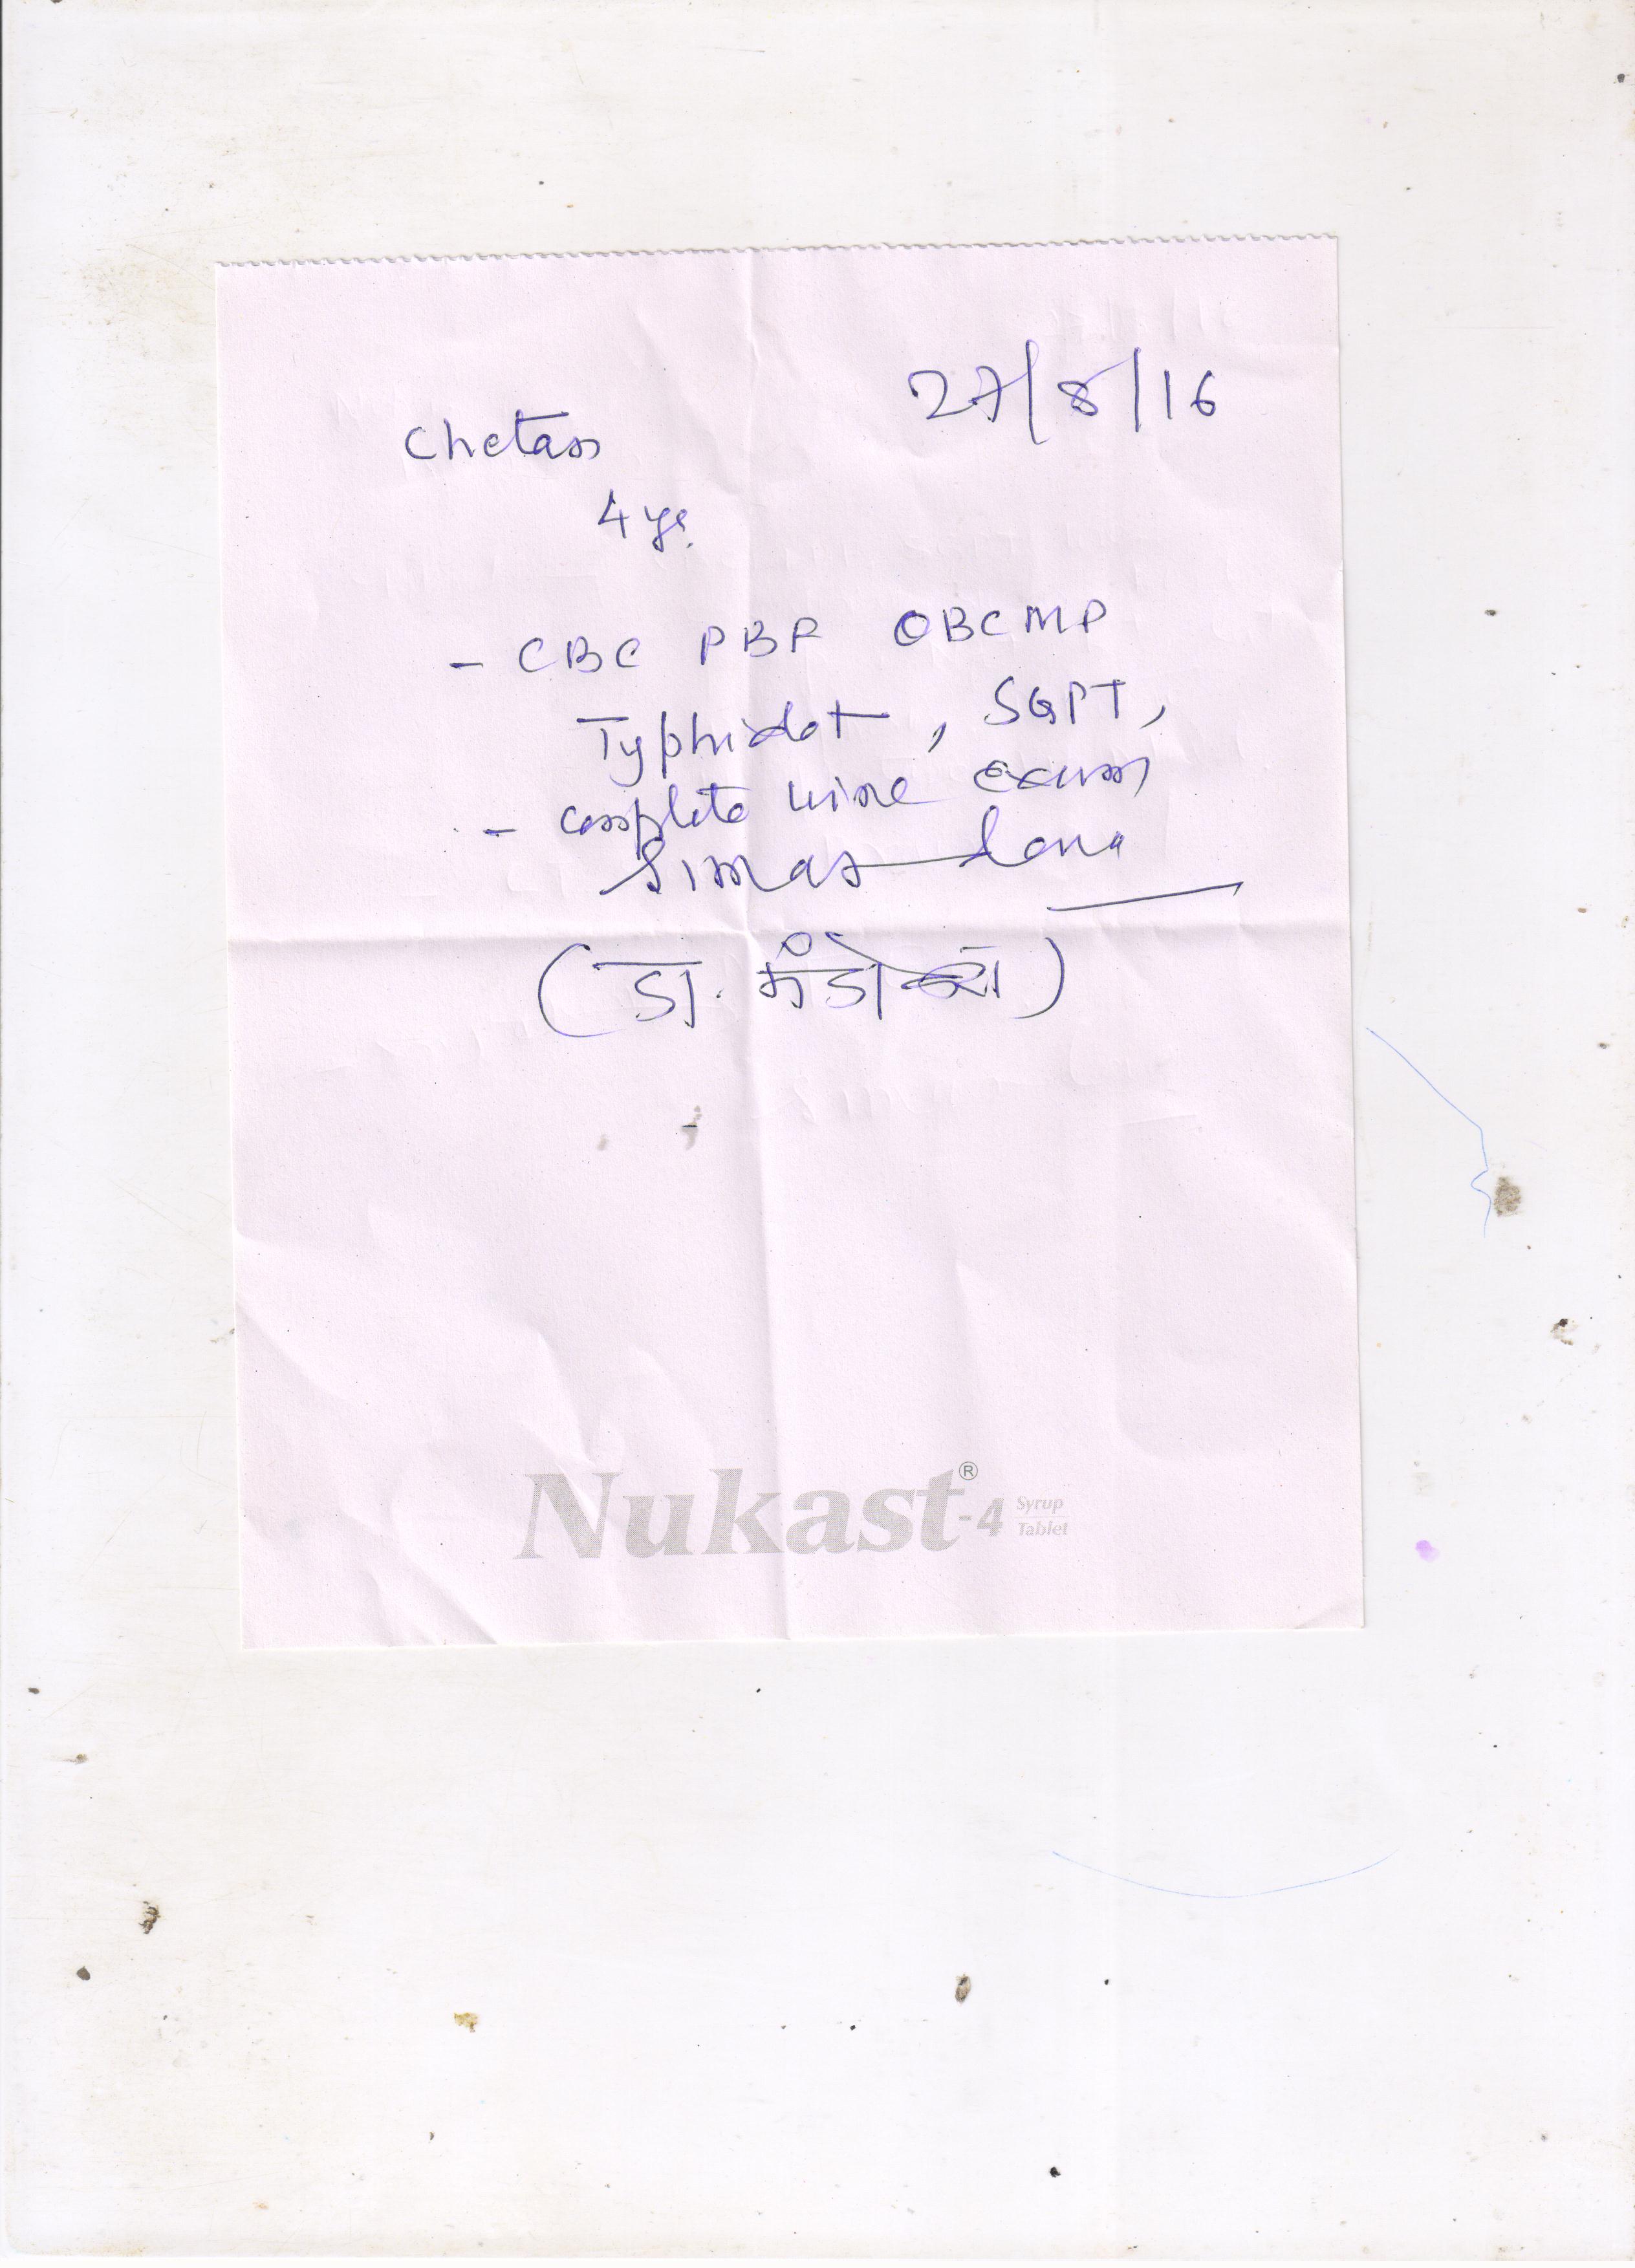 27/8/16
Chetan
4 yr.
- CBC PBF QBCMP
Typhidot, SGPT,
- complete urine exam
(डा.
Nukast®-4 Syrup
Tablet